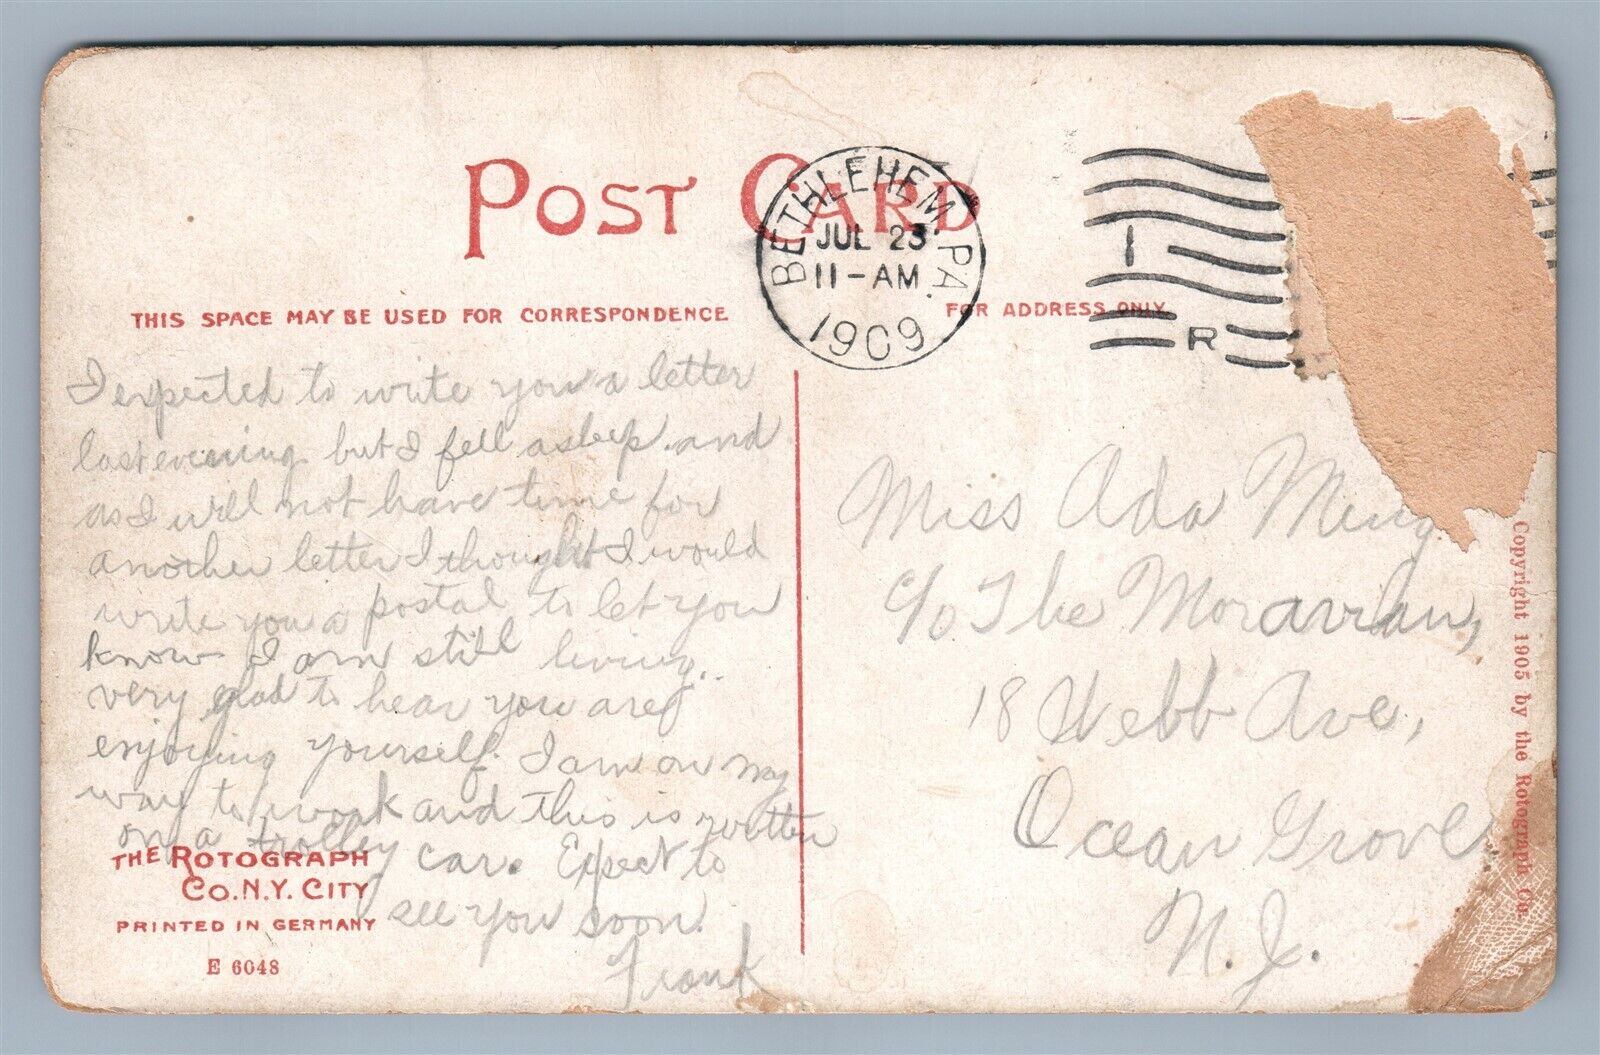 POST CARD
BETHLEHEM, PA.
JUL 23
11-AM
1909
1
R
THIS SPACE MAY BE USED FOR CORRESPONDENCE
FOR ADDRESS ONLY
I expected to write you a letter
last evening but I fell asleep and
as I will not have time for
another letter I thought I would
write you a postal to let you
know I am still living.
very glad to hear you are
enjoying yourself. I am on my
way to work and this is written
on a trolley car. Expect to
see you soon.
Frank
THE ROTOGRAPH
CO. N.Y. CITY
PRINTED IN GERMANY
E 6048
Miss Ada
c/o The Moravian,
18 Webb Ave,
Ocean Grove
N.J.
Copyright 1905 by the Rotograph Co.